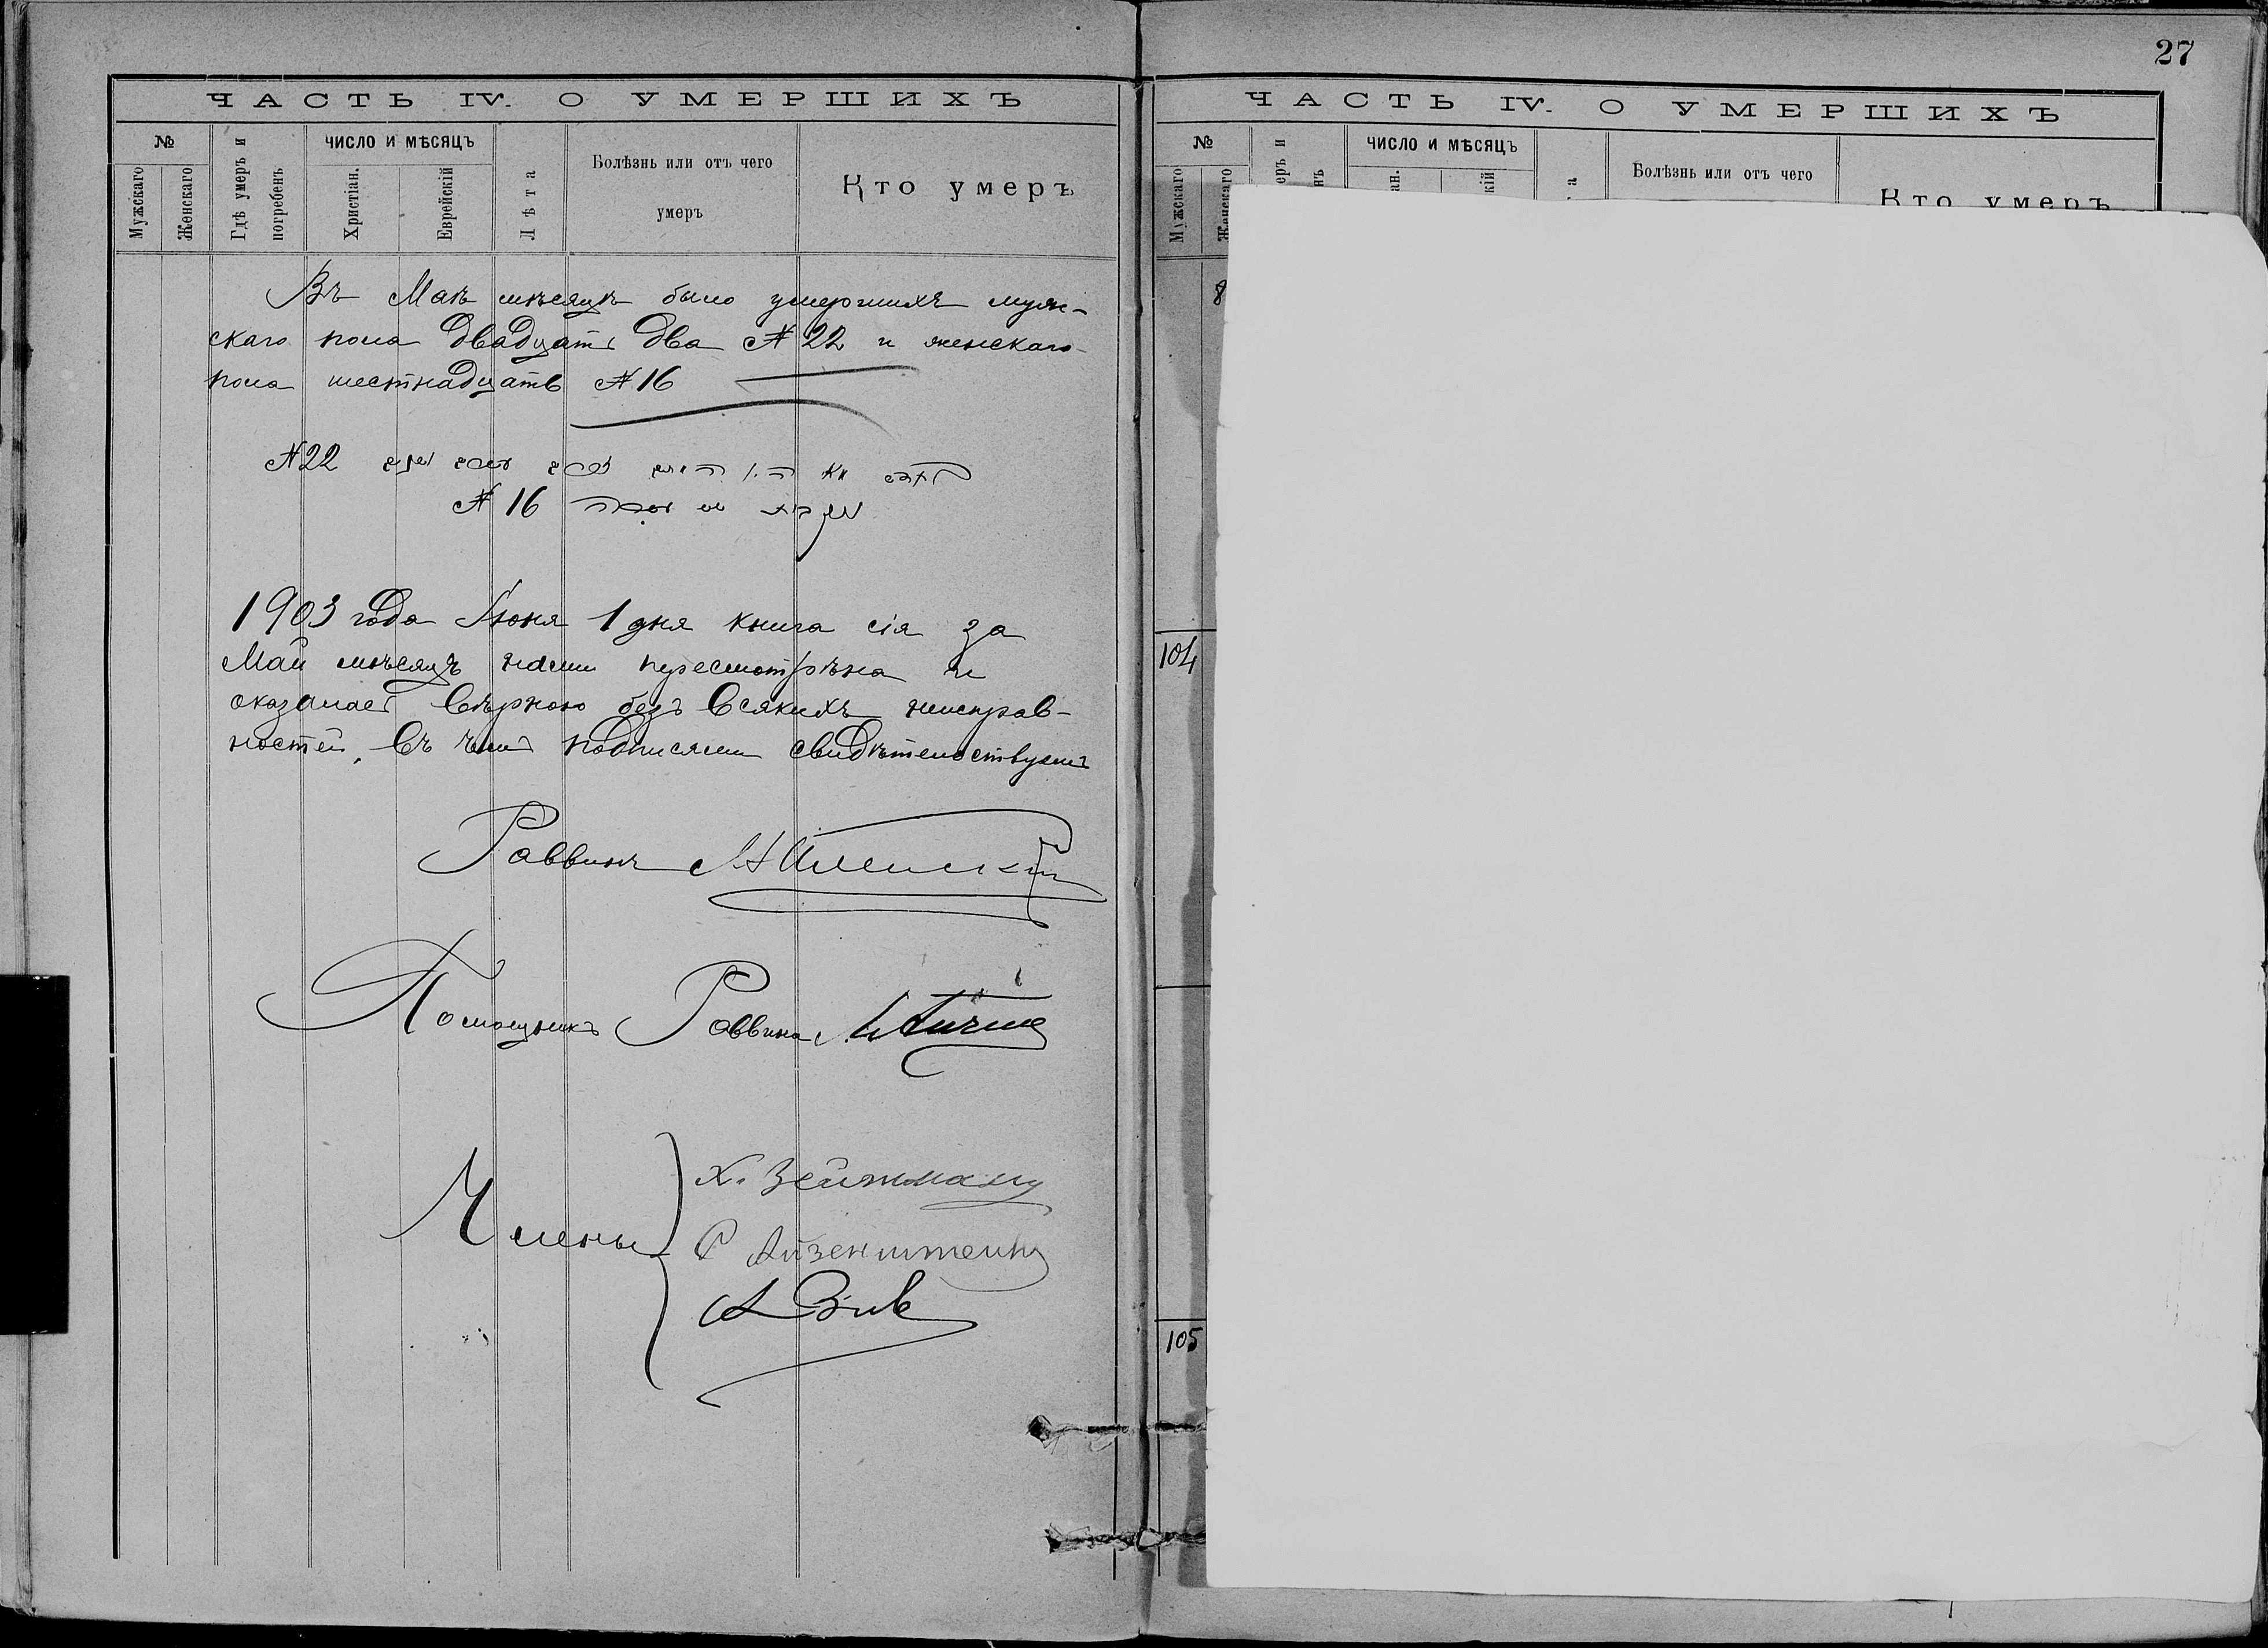 ЧАСТЬ IV. О УМЕРШИХЪ
№
Мужскаго
Женскаго
Гдѣ умеръ и погребенъ
ЧИСЛО И МѢСЯЦЪ
Христіан.
Еврейскій
Лѣта
Болѣзнь или отъ чего
умеръ
Кто умеръ
Въ Маѣ мѣсяцѣ было умершихъ муж-
скаго пола двадцать два № 22 и женскаго
пола шестнадцать № 16
№ 22
№ 16
1903 года Іюня 1 дня книга сія за
Май мѣсяцъ нами пересмотрѣна и
оказалась вѣрною безъ всякихъ неисправ-
ностей, въ чемъ подписями свидѣтельствуемъ
Раввинъ
Помощникъ Раввина
Члены
Х. Зейтманъ
Р Айзенштейнъ
А Зив
27
ЧАСТЬ IV. О УМЕРШИХЪ
№
Мужскаго
Женскаго
еръ и
нъ
ЧИСЛО И МѢСЯЦЪ
ан.
кій
а
Болѣзнь или отъ чего
Кто умеръ
8
104
105